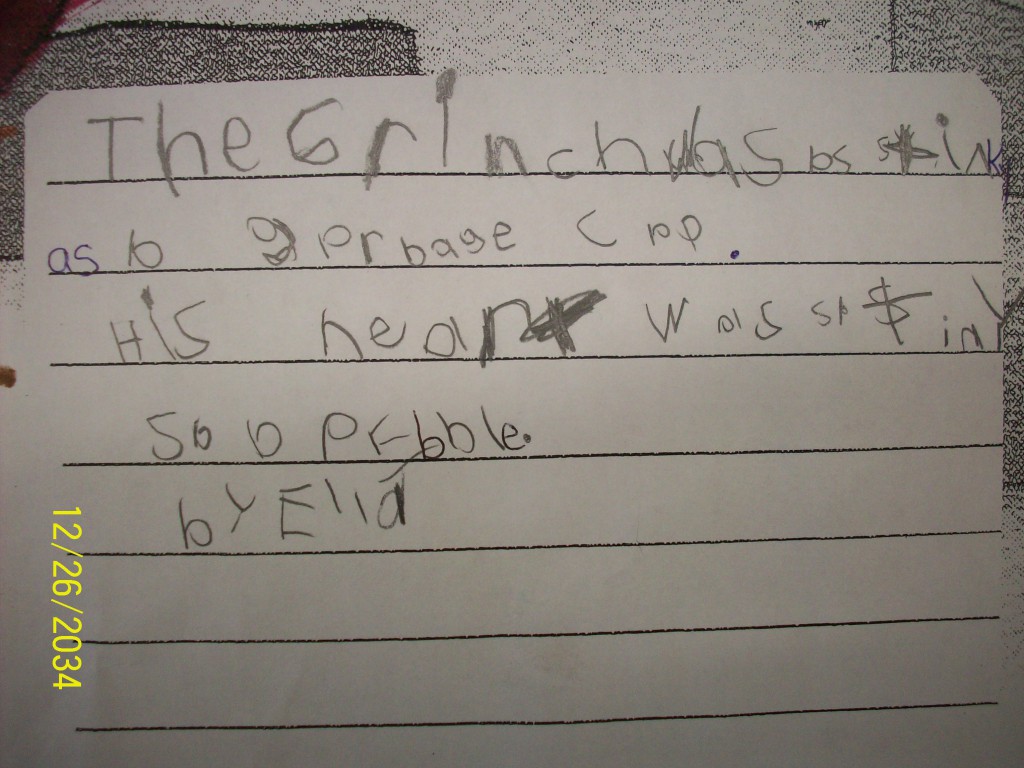 The GrInch was as stink
as a garbage can.
His heart was st in
So a pebble.
by Ella
12/26/2034